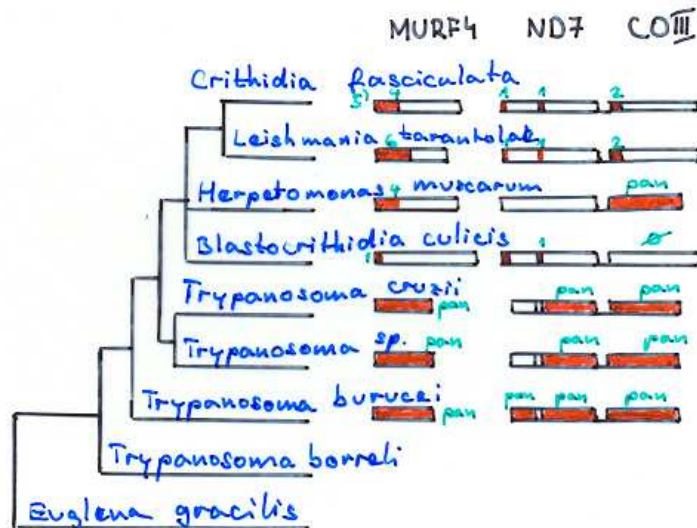 MURF4 ND7 COIII
Crithidia fasciculata
5' 4 1 1 2
Leishmania tarantolae
6 1 1 2
Herpetomonas muscarum
4 pan
Blastocrithidia culicis
1 1 ∅
Trypanosoma cruzii
pan pan pan
Trypanosoma sp.
pan pan pan
Trypanosoma burucei
pan pan pan pan
Trypanosoma borreli
Euglena gracilis